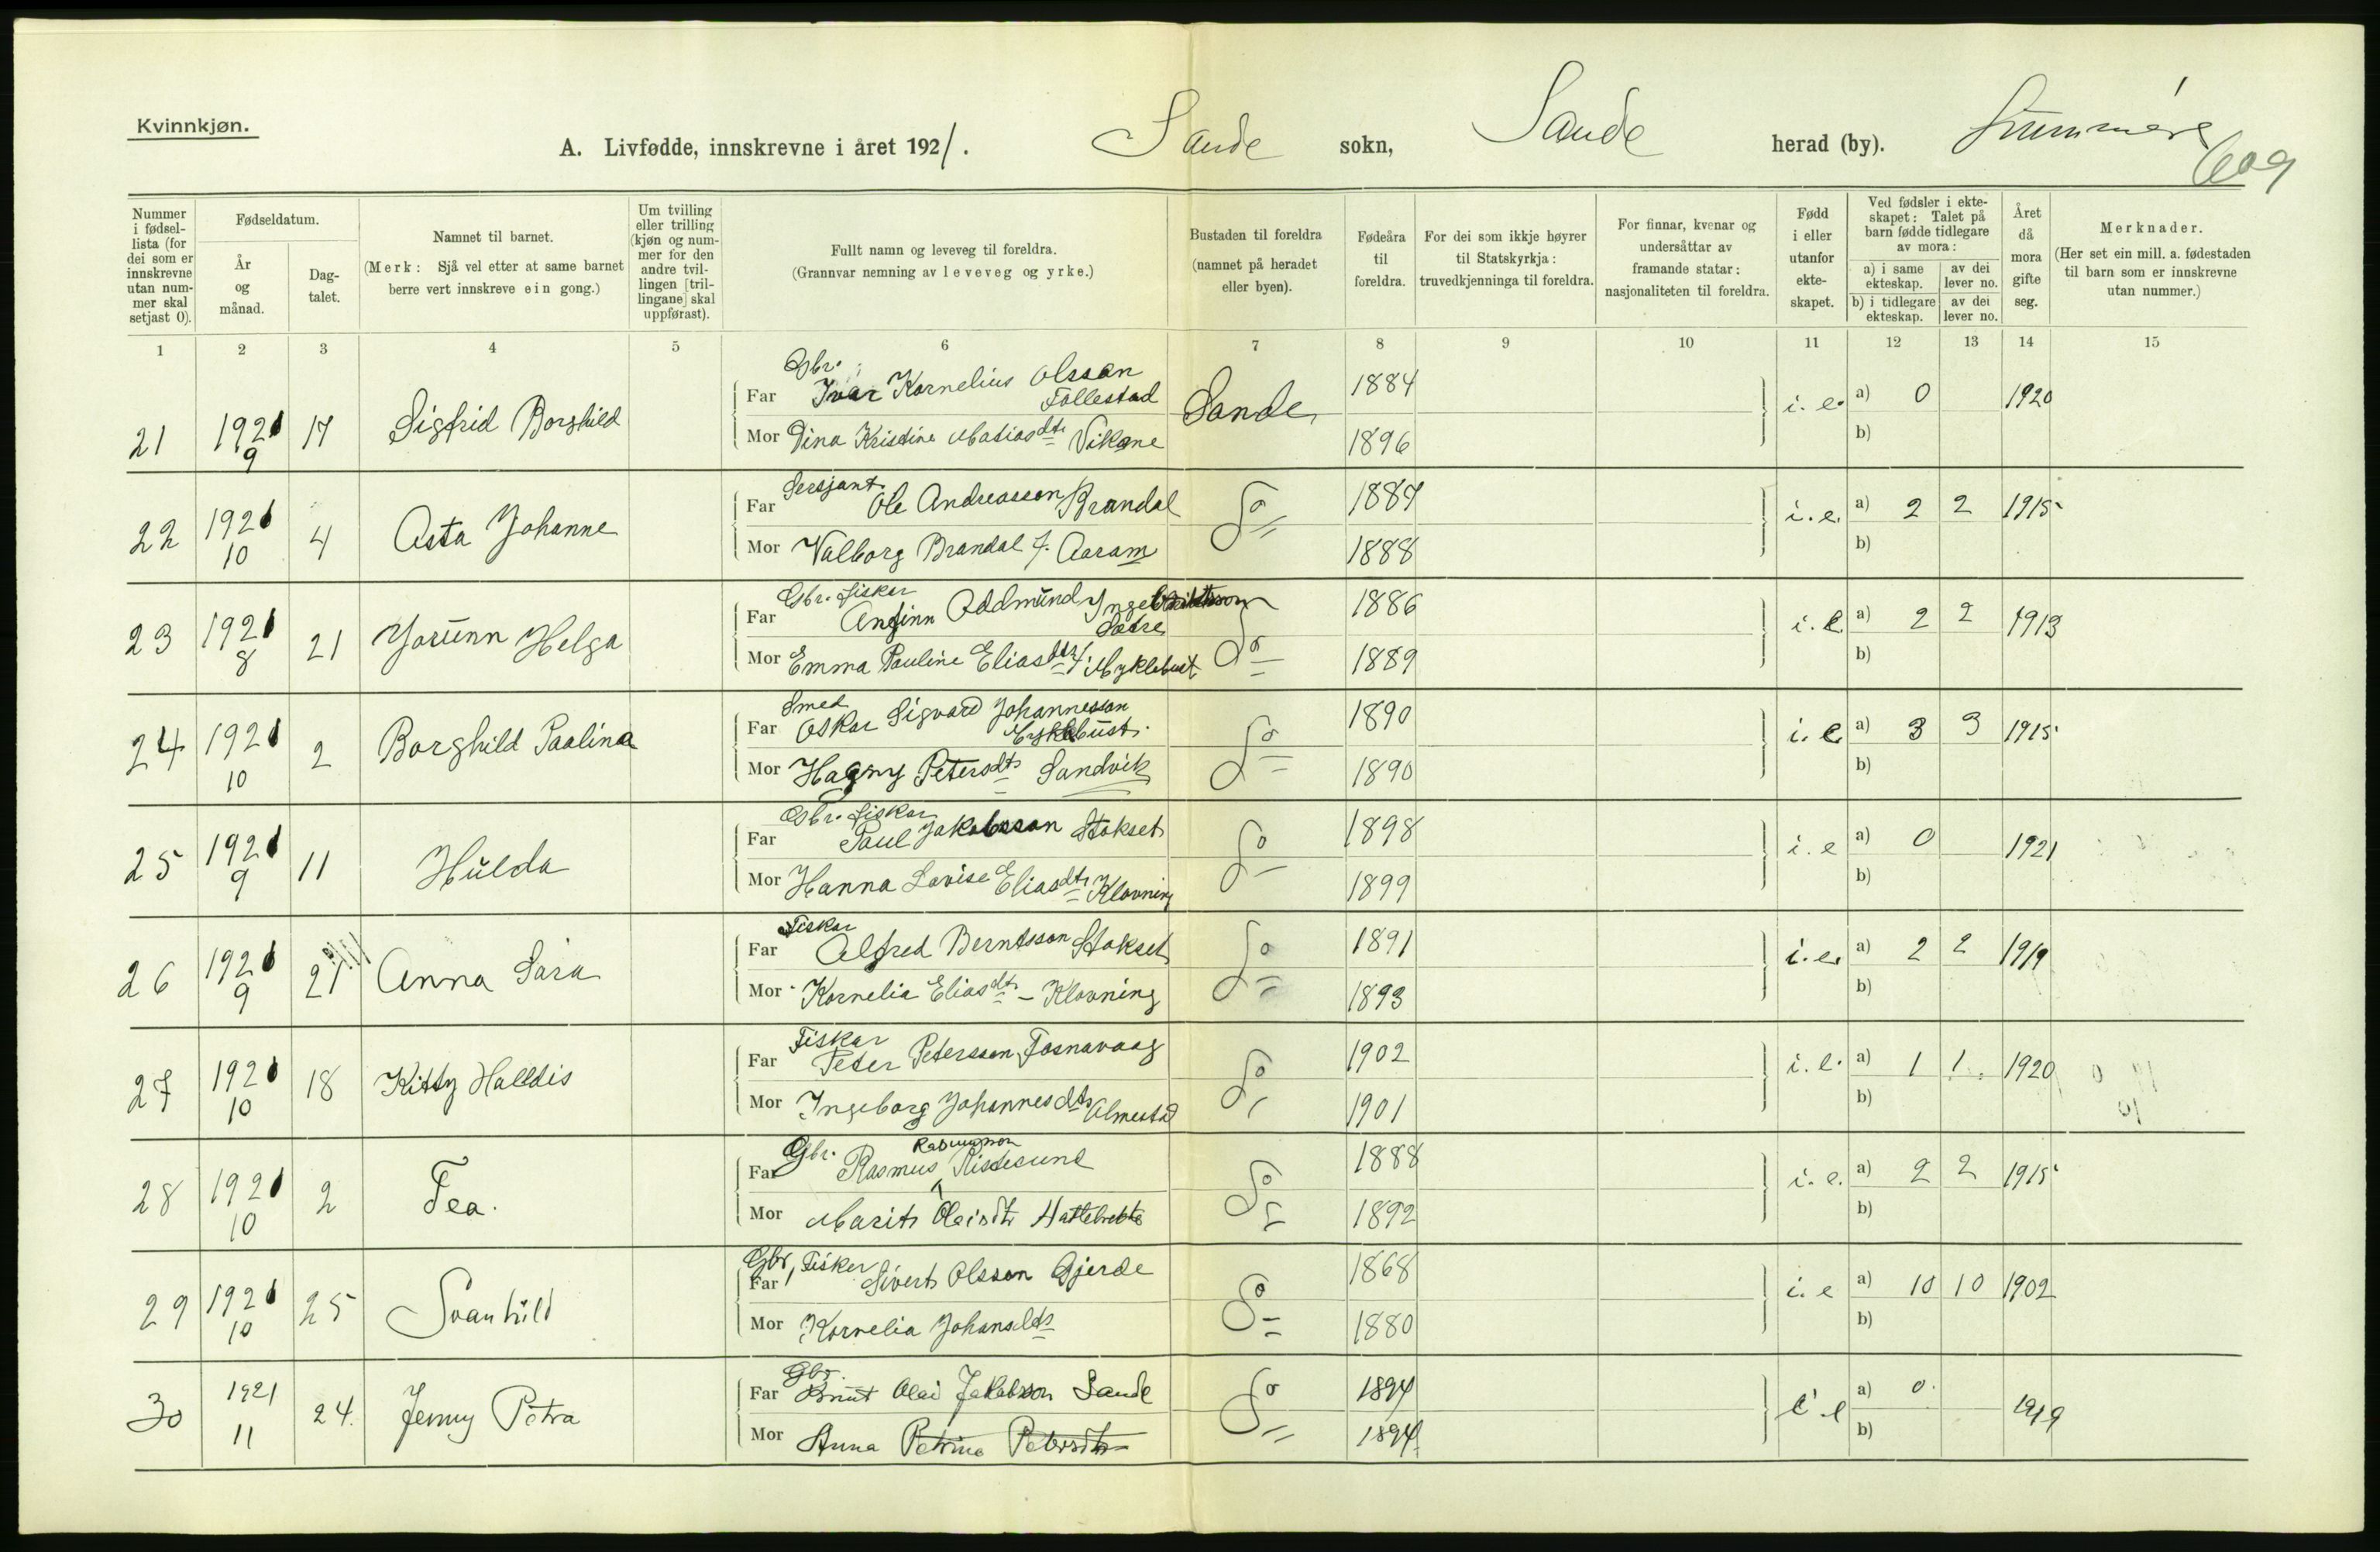 Kvinnkjøn.
A. Livfødde, innskrevne i året 1921. Sande sokn, Sande herad (by). Sunnmøre
609
Nummer i fødsel-lista (for dei som er innskrevne utan num-mer skal setjast 0).
Fødseldatum.
År og månad.
Dag-talet.
Namnet til barnet.
(Merk: Sjå vel etter at same barnet berre vert innskreve ein gong.)
Um tvilling eller trilling (kjøn og num-mer for den andre tvil-lingen [tril-lingane] skal uppførast).
Fullt namn og leveveg til foreldra.
(Grannvar nemning av leveveg og yrke.)
Bustaden til foreldra (namnet på heradet eller byen).
Fødeåra til foreldra.
For dei som ikkje høyrer til Statskyrkja: truvedkjenninga til foreldra.
For finnar, kvenar og undersåttar av framande statar: nasjonaliteten til foreldra.
Fødd i eller utanfor ekte-skapet.
Ved fødsler i ekte-skapet: Talet på barn fødde tidlegare av mora:
a) i same ekteskap.
av dei lever no.
b) i tidlegare ekteskap.
av dei lever no.
Året då mora gifte seg.
Merknader.
(Her set ein mill. a. fødestaden til barn som er innskrevne utan nummer.)
1 2 3 4 5 6 7 8 9 10 11 12 13 14 15
Gbr.
Far Ivar Kornelius Olsson Follestad 1884
21 1921 9 17 Sigfrid Borghild Sande i. e. a) 0 1920
Mor Dina Kristine Matiasdtr Vikane 1896 b)
Sersjant.
Far Ole Andreasson Brandal 1887
22 1921 10 4 Asta Johanne Do i. e. a) 2 2 1915
Mor Valborg Brandal f. Aaram 1888 b)
Gbr. fisker
Far Anfinn Oddmund Sætre 1886
23 1921 8 21 Jorunn Helga Do i. e. a) 2 2 1913
Mor Emma Pauline Eliasdtr f. Myklebust 1889 b)
Smed
Far Oskar Sigvard Johannesson Myklebust. 1890
24 1921 10 2 Borghild Paulina Do i. e. a) 3 3 1915
Mor Hagny Petersdtr Sandvik 1890 b)
Gbr. fiskar
Far Paul Jakobsson Stokset 1898
25 1921 9 11 Hulda Do i. e a) 0 1921
Mor Hanna Lovise Eliasdtr Klovning 1899 b)
Fiskar
Far Alfred Berntsson Stokset 1891
26 1921 9 21 Anna Sara Do i. e. a) 2 2 1919
Mor Kornelia Eliasdtr - Klovning 1893 b)
Fiskar
Far Peter Petersson Fosnavaag 1902
27 1921 10 18 Kitty Halldis Do i. e. a) 1 1 1920
Mor Ingeborg Johannesdtr Almestad 1901 b)
Gbr. Rasmusson
Far Rasmus Ristesund 1888
28 1921 10 2 Tea. Do i. e. a) 2 2 1915
Mor Marit Olaisdtr Hattlebrekke 1892 b)
Gbr, Fisker
Far Sivert Olsson Gjerde 1868
29 1921 10 25 Svanhild Do i. e a) 10 10 1902
Mor Kornelia Johansdtr 1880 b)
Gbr.
Far Knut Olai Jakobson Sande 1894
30 1921 11 24. Jenny Petra Do i. e a) 0. 1919
Mor Anna Petrine Petersdtr 1894 b)